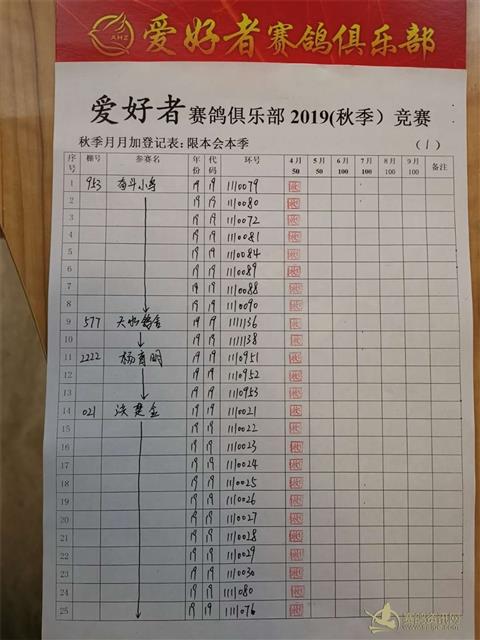 AHZ
爱好者赛鸽俱乐部
爱好者赛鸽俱乐部2019(秋季)竞赛
秋季月月加登记表:限本会本季 (1)
序号 棚号 参赛名 年份 代码 环号 4月50 5月50 6月100 7月100 8月100 9月100 备注
1 953 奋斗小冬 19 19 1110079
2 19 19 1110080
3 19 19 1110072
4 19 19 1110081
5 19 19 1110084
6 19 19 1110089
7 19 19 1110088
8 19 19 1110090
9 577 天水鸽舍 19 19 1111136
10 19 19 1111138
11 2222 杨育明 19 19 1110951
12 19 19 1110952
13 19 19 1110953
14 021 洪楚金 19 19 1110021
15 19 19 1110022
16 19 19 1110023
17 19 19 1110024
18 19 19 1110025
19 19 19 1110026
20 19 19 1110027
21 19 19 1110028
22 19 19 1110029
23 19 19 1110030
24 19 19 111080
25 19 19 111076